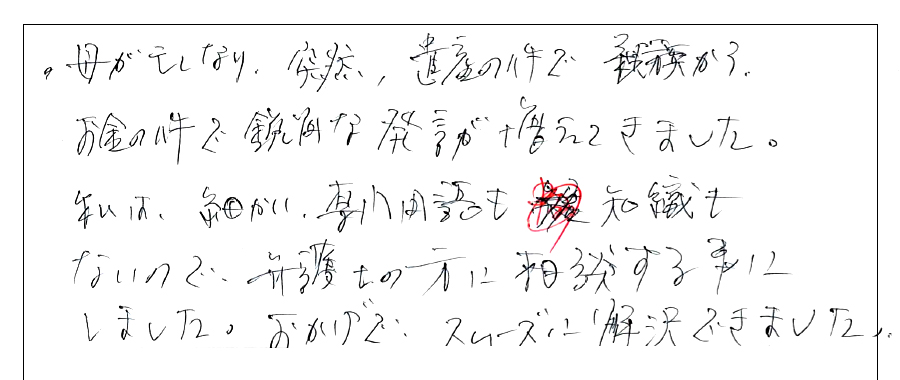 ・母が亡くなり、突然、遺産の件で 親族から、
お金の件で 鋭角な発言が増えてきました。
私は、細かい、専門用語も 知識も
ないので、弁護士の方に相談する事に
しました。おかげで、スムーズに解決できました。